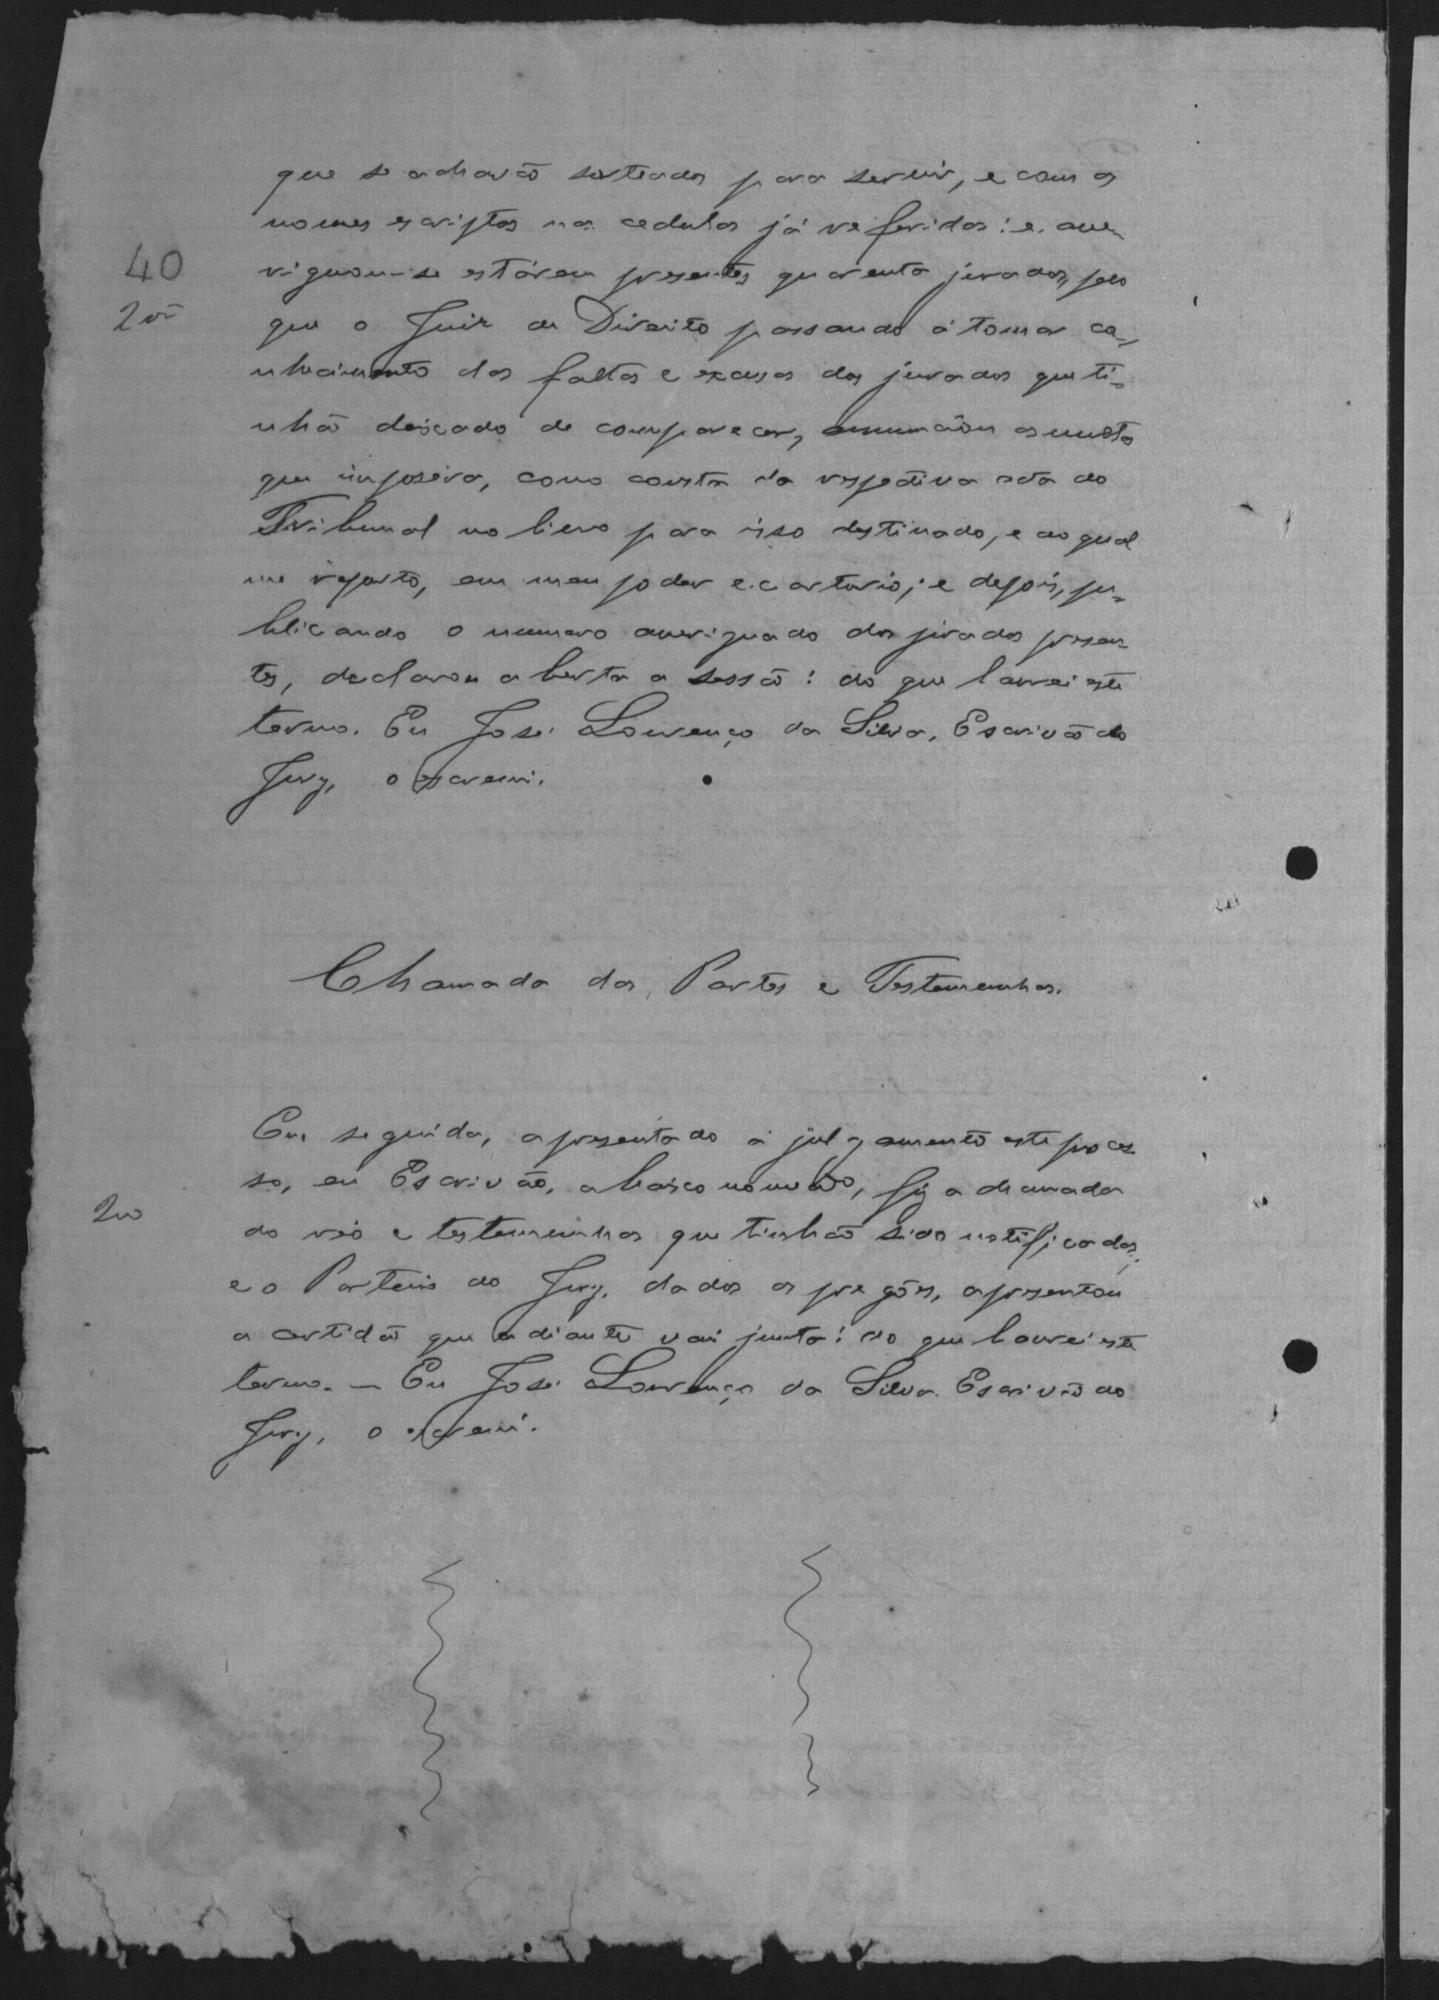 que se achavão sorteados para servir, e com os
nomes escriptos nas cedulas já referidas: e ave-
40
riguou-se estárem presentes quarenta jurados, pelo
200
que o Juiz de Direito passando á tomar co-
nhecimento das faltas e excusas dos jurados que ti-
nhão deixado de comparecer, annunciou as multas
que imposera, como consta da respectiva acta do
Tribunal no livro para isso destinado, e ao qual
me reporto, em meu poder e cartorio; e depois, pu-
blicando o numero averiguado dos jurados presen-
tes, declarou aberta a sessão: do que lavrei este
termo. Eu José Lourenço da Silva, Escrivão do
Jury, o escrevi.
Chamada das Partes e Testemunhas.
Em seguida, apresentado á julgamento este proces
so, eu Escrivão, abaixo nomeado, fiz a chamada
200
do réo e testemunhas que tinhão sido notificadas,
e o Porteiro do Jury, dados os pregões, apresentou
a certidão que adiante vai junta: do que lavrei este
termo. — Eu José Lourenço da Silva Escrivão do
Jury, o escrevi.